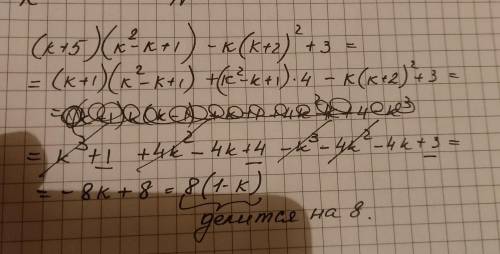 (k+5)(k²-k+1) - k(k+2)² + 3 =
= (k+1)(k²-k+1) + (k²-k+1)·4 - k(k+2)² + 3 =
= k³ + 1 + 4k² - 4k + 4 - k³ - 4k² - 4k + 3 =
= -8k + 8 = 8(1-k)
делится на 8.